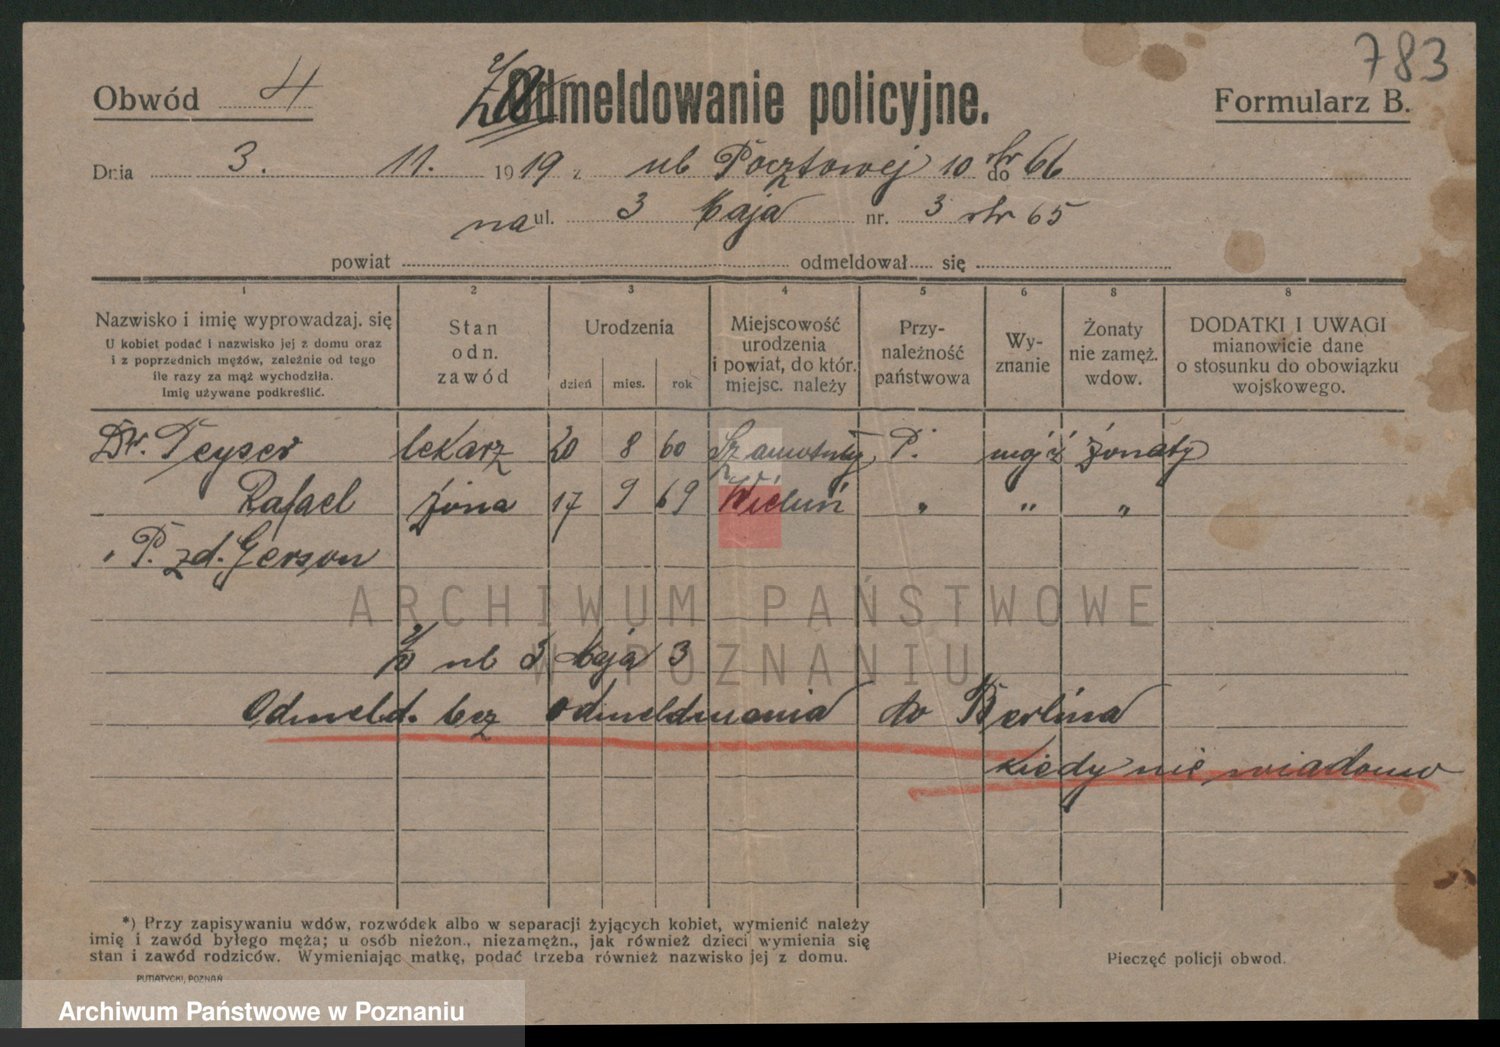 783
Obwód 4 Zameldowanie policyjne. Formularz B.
Dnia 3. 11. 1919 z ul Pocztowej 10 do 66
na ul. 3 Maja nr. 3 str 65
powiat odmeldował się
1 2 3 4 5 6 8 8
Nazwisko i imię wyprowadzaj. się
U kobiet podać i nazwisko jej z domu oraz
i z poprzednich mężów, zależnie od tego
ile razy za mąż wychodziła.
Imię używane podkreślić.
Stan
odn.
zawód
Urodzenia
dzień mies. rok
Miejscowość
urodzenia
i powiat, do któr.
miejsc. należy
Przy-
należność
państwowa
Wy-
znanie
Żonaty
nie zamęż.
wdow.
DODATKI I UWAGI
mianowicie dane
o stosunku do obowiązku
wojskowego.
Dr. Peyser lekarz 20 8 60 Szamotuły P. mojż żonaty
Rafael żona 17 9 69 Wieluń " " "
" P. zd. Gerson
ARCHIWUM PAŃSTWOWE
W POZNANIU
Z ul 3 Maja 3
Odmeld. bez odmeldowania do Berlina
kiedy nie wiadomo
*) Przy zapisywaniu wdów, rozwódek albo w separacji żyjących kobiet, wymienić należy
imię i zawód byłego męża; u osób nieżon., niezamężn., jak również dzieci wymienia się
stan i zawód rodziców. Wymieniając matkę, podać trzeba również nazwisko jej z domu.
Pieczęć policji obwod.
PUTIATYCKI, POZNAŃ
Archiwum Państwowe w Poznaniu